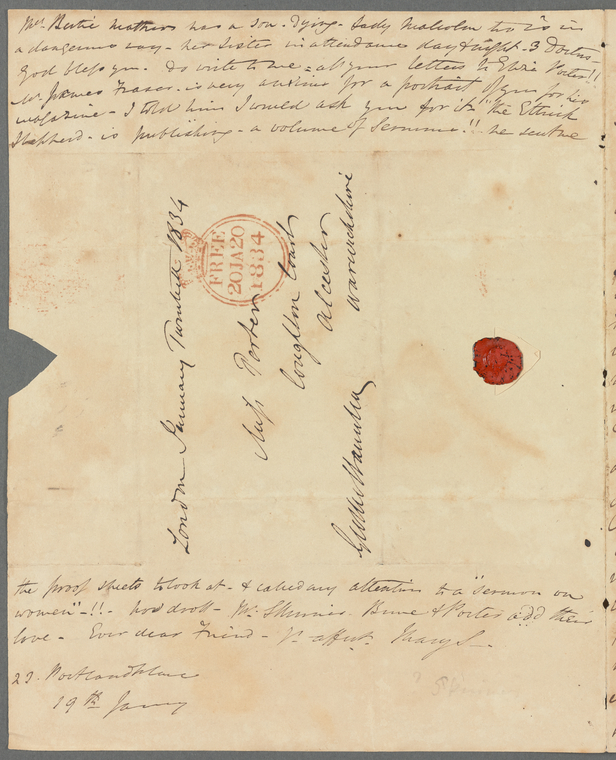 Mrs. Bertie Mathew has a son - dying - Lady Malcolm too is in
a dangerous way - her sister in attendance day & night - 3 Doctors
God bless you. do write to me - all your letters Eliza Porter!!
Mr. James Fraser - is very anxious for a portrait of you for his
magazine - I told him I would ask you for it. "the Ettrick
Shepherd - is publishing - a volume of Sermons"!! he sent me
London January Twentieth 1834
FREE
20JA20
1834
Miss Porter
Coughton Court
Alcester
Warwickshire
the proof sheets to look at - & called my attention to a "Sermon on
women" - !! - how droll - Mr. & Porter add their
love - Ever dear Friend - Yr affect. Mary S -
23. Portland Place
19th Janry